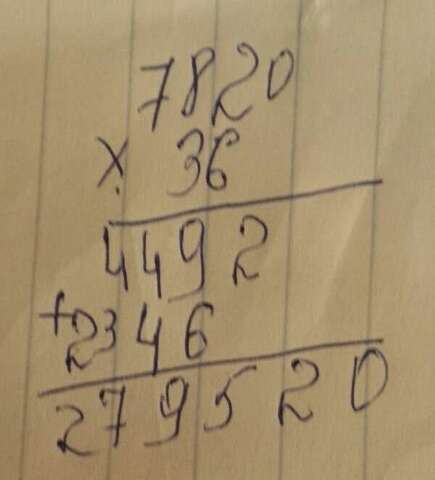 7820
× 36
4492
+2346
279520